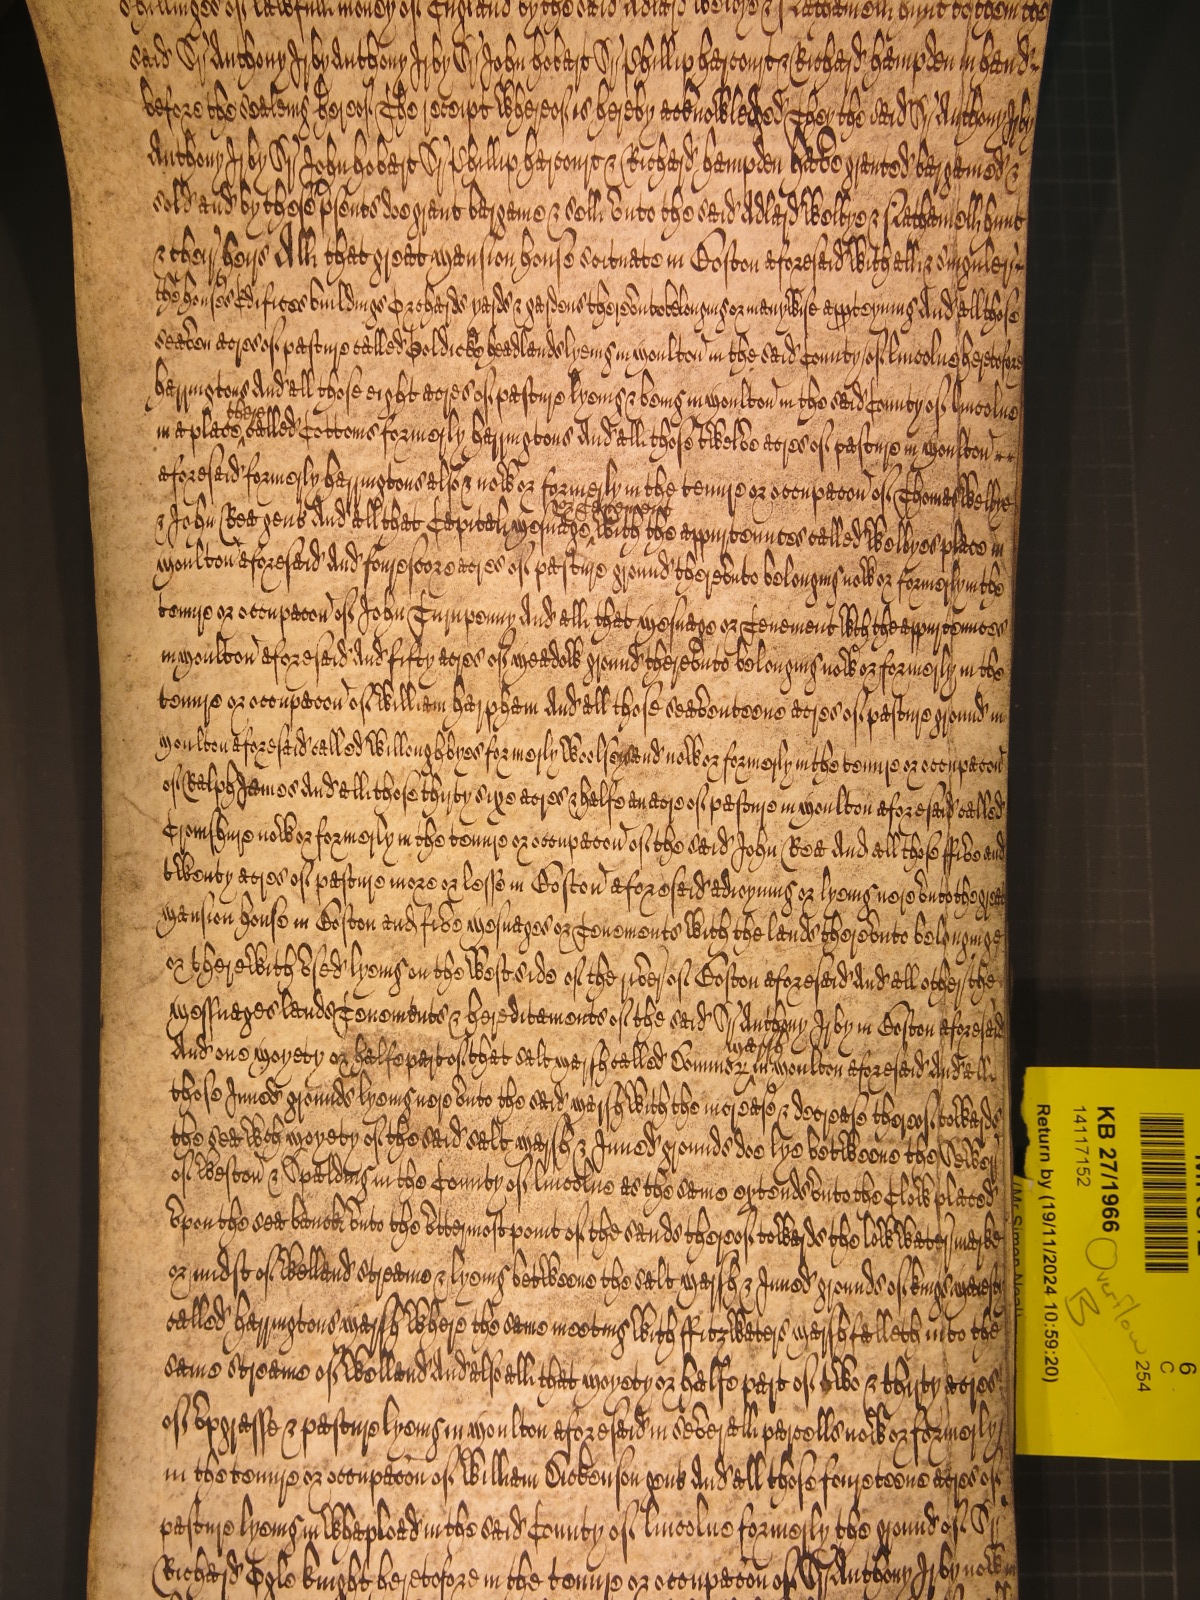 shillinges of lawfull money of England by the said Adlard Welbye & Nathaniell hunt to them the
said Sr Anthony Irby Anthony Irby Sr John hobart Sr Phillip harcourt & Richard hampden in hand
before the sealeing hereof The receipt whereof is hereby acknowledged They the said Sr Anthony Irby
Anthony Irby Sr John hobart Sr Phillip harcourt & Richard hampden have granted bargained &
sold and by these prsents doe grant bargaine & sell unto the said Adlard Welbye & Nathaniell hunt
& their heirs All that great mansion house scituate in Boston aforesaid with all & singuler
the houses Edifices buildings Orchards yards & gardens thereunto belonging or in anywise apperteyning And all those
seaven acres of pasture called headlands lyeing in Moulton in the said County of Lincolne heretofore
harringtons And all those eight acres of pasture lyeing & being in Moulton in the said County of Lincolne
in a place there called Cottoms formerly harringtons And all those twelve acres of pasture in Moulton
aforesaid formerly harringtons also & now or formerly in the tenure or occupacon of Thomas Welbye
& John Rea gens And all that Capitall Mesuage or Tenement with the appurtennces called Welbyes place in
Moulton aforesaid And fourescore acres of pasture ground thereunto belonging now or formerly in the
tenure or occupacon of John Turnpenny And all that Mesuage or Tenement wth the appurtennces
in Moulton aforesaid And fifty acres of meadow ground thereunto belonging now or formerly in the
tenure or occupacon of William harpham And all those seaventeene acres of pasture ground in
Moulton aforesaid called Willoughbyes formerly Woolseys and now or formerly in the tenure or occupacon
of Ralph James And all those thirty sixe acres & halfe an acre of pasture in Moulton aforesaid called
now or formerly in the tenure or occupacon of the said John Rea And all those ffive and
twenty acres of pasture more or lesse in Boston aforesaid adioyning or lyeing nere unto the great
mansion house in Boston and five mesuages or Tenements with the lands thereunto belonginge
or therewith used lyeing on the West side of the river of Boston aforesaid And all other the
Messuages lands Tenements & hereditaments of the said Sr Anthony Irby in Boston aforesaid
And one Moyety or halfe part of that salt marsh called Common marsh in Moulton aforesaid And all
those Inned grounds lyeing nere unto the said marsh with the increase & decrease thereof towards
the sea wch moyety of the said salt marsh & Inned grounds doe lye betweene the Sewer
of Weston & Spalding in the County of Lincolne as the same extends unto the Clow placed
upon the sea banck unto the uttermost point of the sands thereof towards the low water marke
or midst of Welland streame & lyeing betweene the salt marsh & Inned grounds of kings
called harringtons marsh where the same meeting with ffitzwaters marsh falleth into the
same streame of Welland And also all that moyety or halfe part of two & thirty acres
of upgrasse & pasture lyeing in Moulton aforesaid in severall parcells now or formerly
in the tenure or occupacon of William Dickenson gent And all those foureteene acres of
pasture lyeing in Whaplead in the said County of Lincolne formerly the ground of Sr
Richard Ogle knight heretofore in the tenure or occupacon of Sr Anthony Irby now
KB 27/1966
14117152
Return by (19/11/2024 10:59:20)
Overflow
B
6
C
254